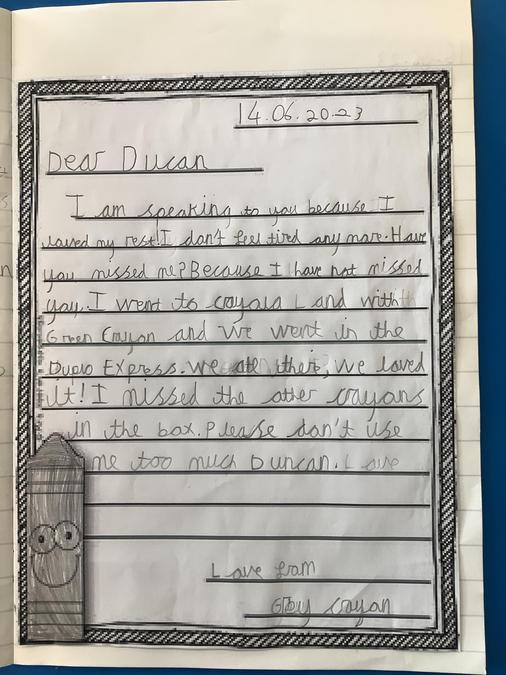 14.06.2023
Dear Ducan
I am speaking to you because I
loved my rest! I don't feel tired any more. Have
you missed me? Because I have not missed
you. I went to crayola Land with
Green Crayon and we went in the
Duplo Express. we all there, we loved
it! I missed the other crayons
in the box. Please don't use
me too much Duncan. Love
Love from
Grey crayon